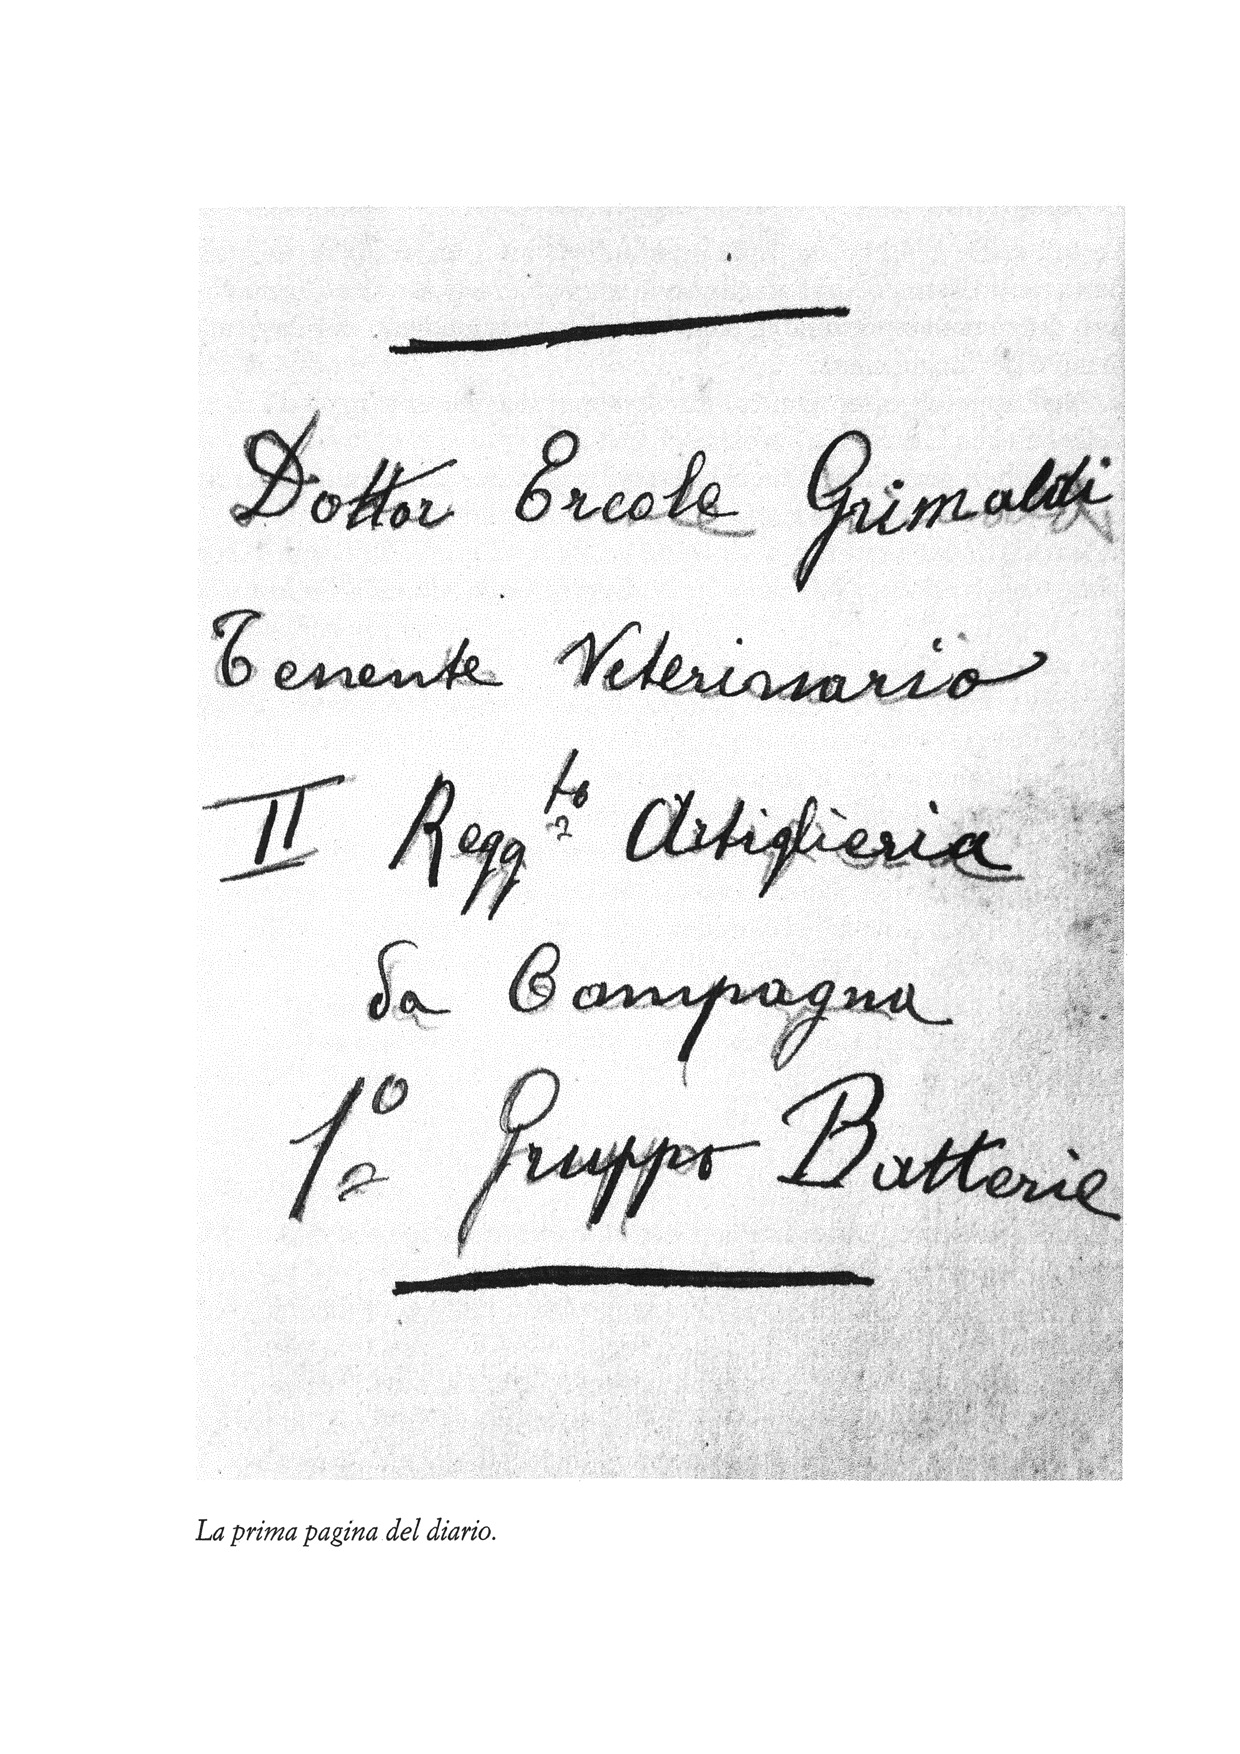 Dottor Ercole Grimaldi
Tenente Veterinario
II Regg.to Artiglieria
da Campagna
1º Gruppo Batterie
La prima pagina del diario.